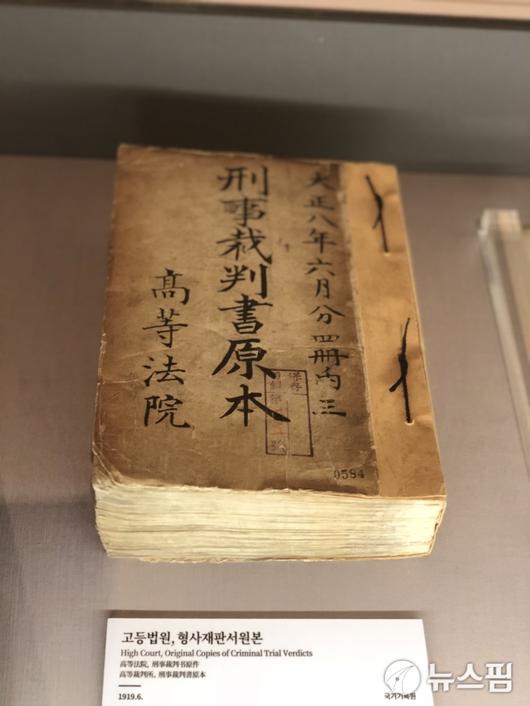 大正八年六月分四冊內三
刑事裁判書原本
高等法院
保存
0584
고등법원, 형사재판서원본
High Court, Original Copies of Criminal Trial Verdicts
高等法院, 刑事裁判书原件
高等裁判所, 刑事裁判書原本
1919.6.
국가기록원
뉴스핌